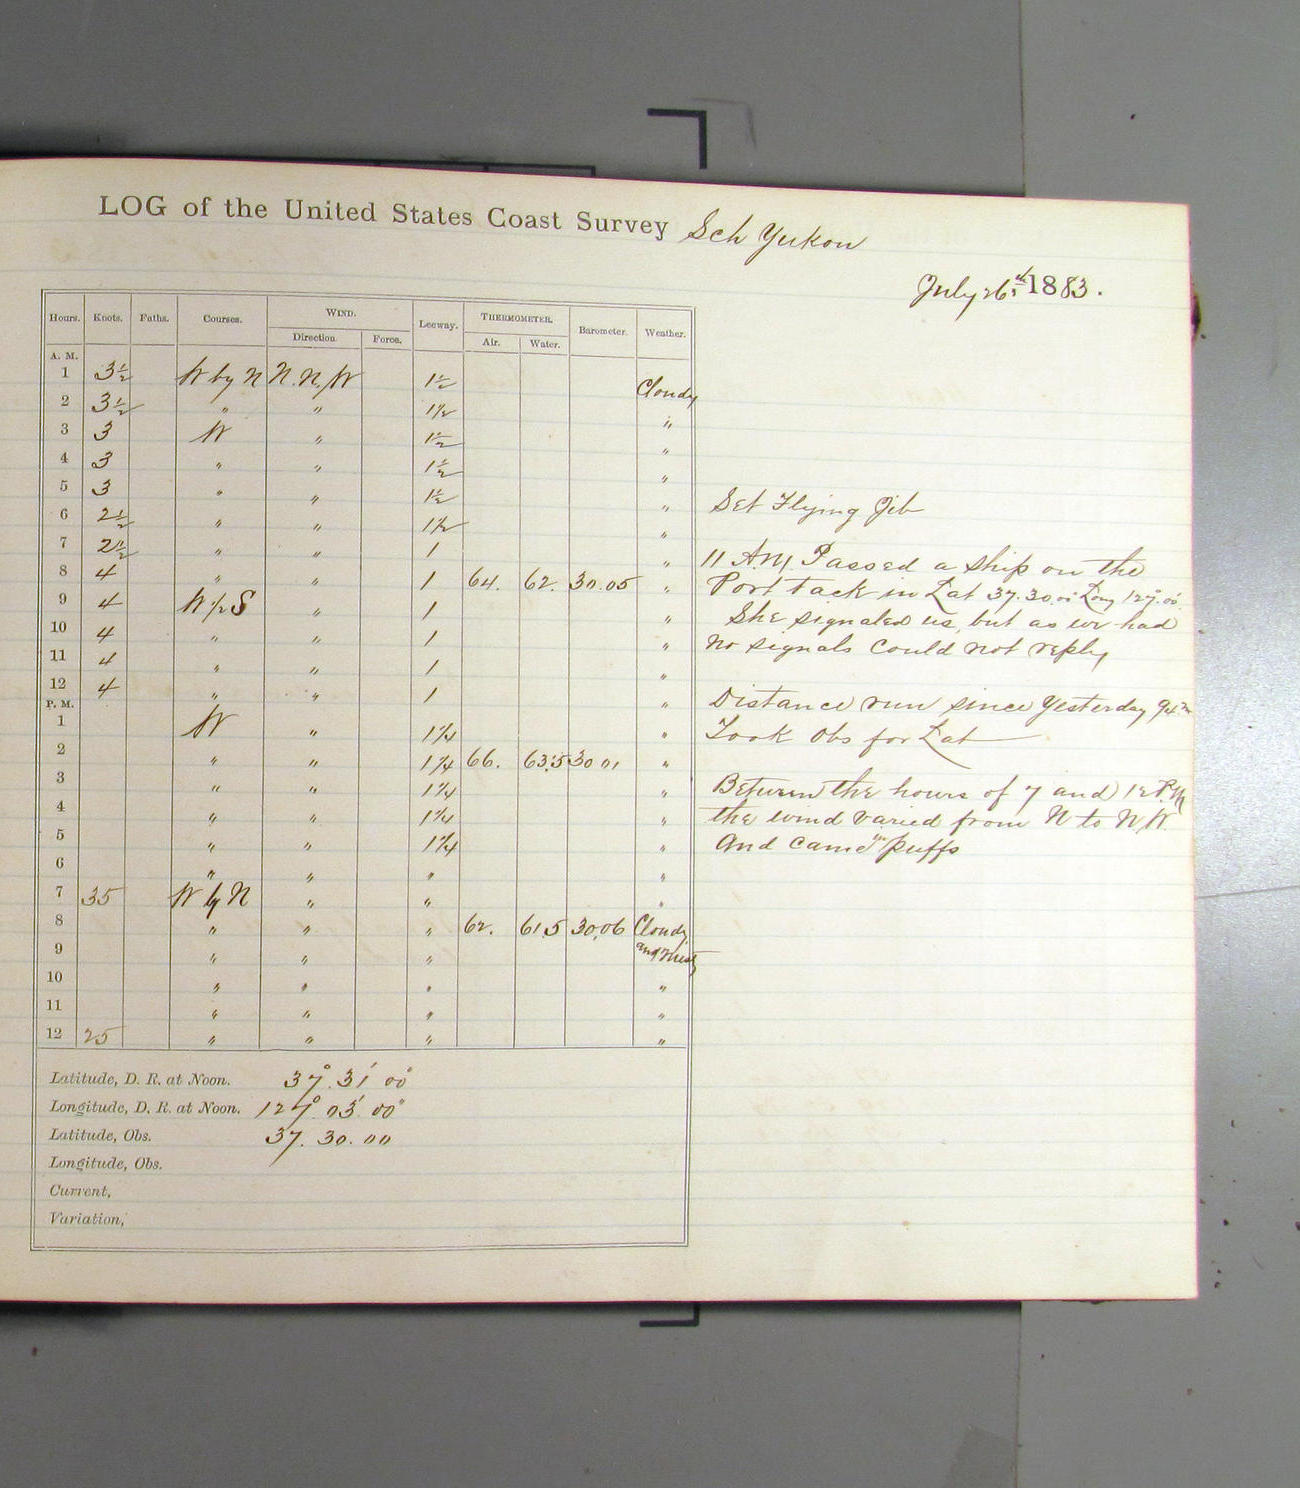 LOG of the United States Coast Survey Sch Yukon
July 26th 1883.
Hours. Knots. Faths. Courses. WIND. Leeway. THERMOMETER. Barometer. Weather.
Direction. Force. Air. Water.
A. M.
1 3½ W by N N.N.W 1½ Cloudy
2 3½ " " 1½ "
3 3 W " 1½ "
4 3 " " 1½ "
5 3 " " 1½ "
6 2½ " " 1½ "
7 2½ " " 1 "
8 4 " " 1 64. 62. 30.05 "
9 4 W ½ S " 1 "
10 4 " " 1 "
11 4 " " 1 "
12 4 " " 1 "
P. M.
1 W " 1¼ "
2 " " 1¼ 66. 63.5 30 01 "
3 " " 1¼ "
4 " " 1¼ "
5 " " 1¼ "
6 " " " "
7 35 W by N " " "
8 " " " 62. 61.5 30.06 Cloudy
9 " " " and Misty
10 " " " "
11 " " " "
12 25 " " " "
Latitude, D. R. at Noon. 37° 31' 00"
Longitude, D. R. at Noon. 127° 03' 00"
Latitude, Obs. 37. 30. 00
Longitude, Obs.
Current,
Variation,
Set Flying Jib
11 A.M. Passed a ship on the
Port tack in Lat 37.30.00 Long 127.00
She signaled us, but as we had
no signals could not reply
Distance run since Yesterday 94 m
Took Obs for Lat
Between the hours of 7 and 12 P.M
the wind varied from N to N.W.
and came in puffs